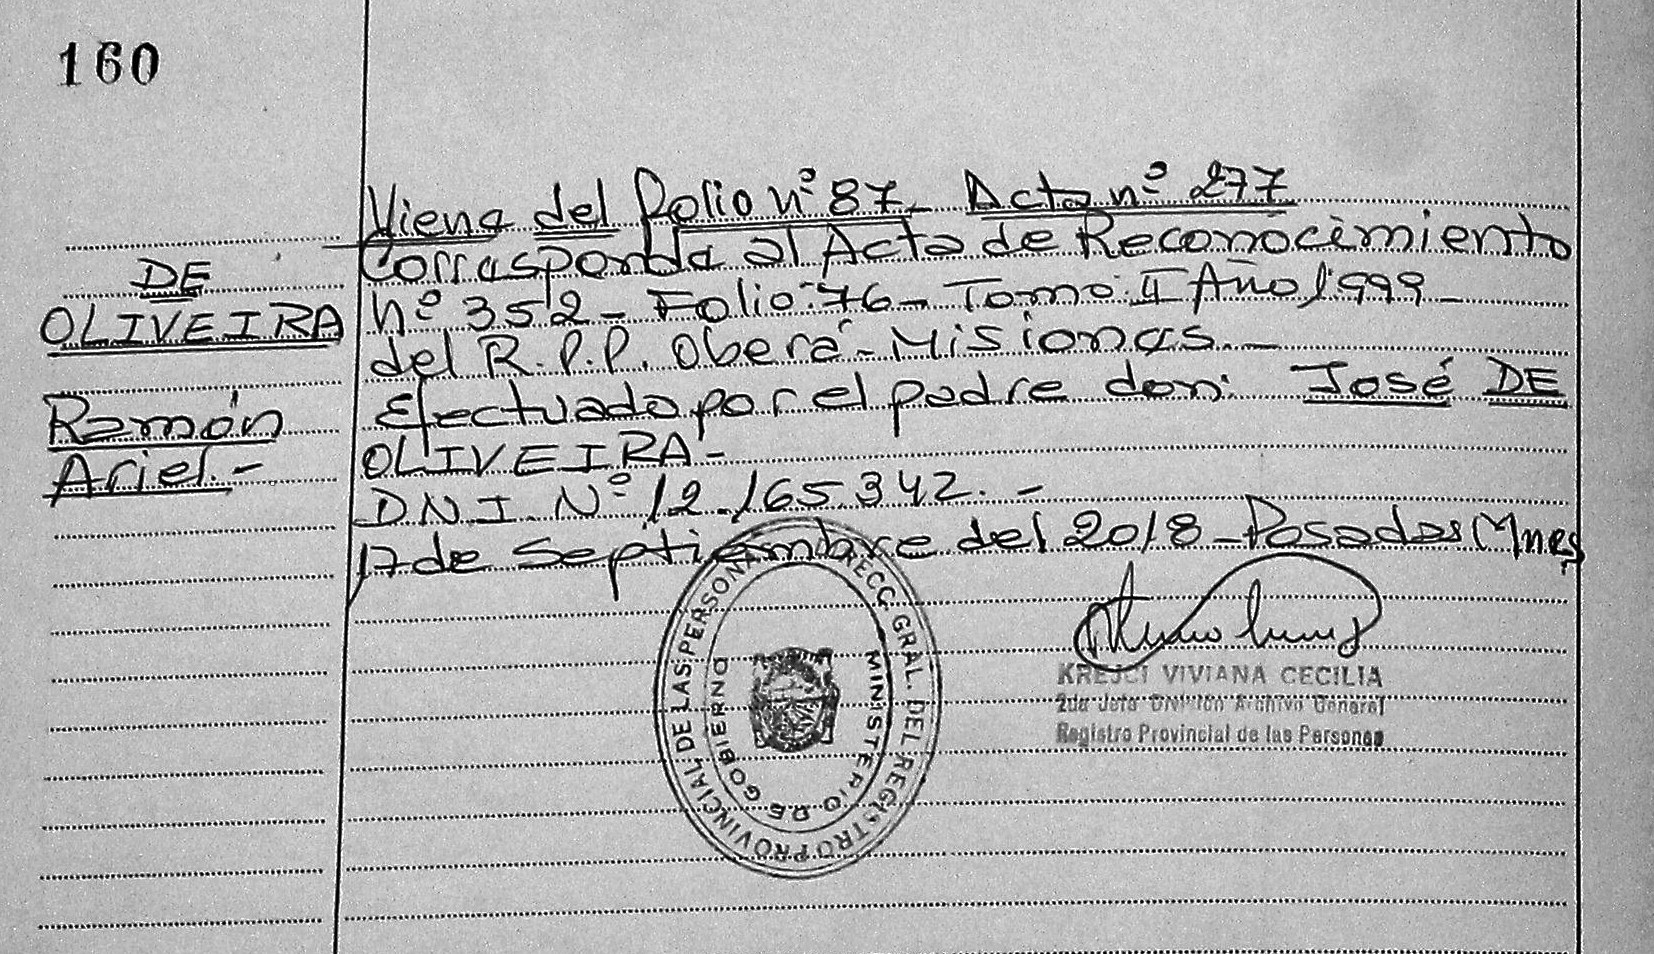 160
DE
OLIVEIRA
Ramón
Ariel.-
Viene del Folio n° 87- Acta n° 277
Corresponde al Acta de Reconocimiento
n° 352- Folio: 76- Tomo: II Año 1999-
del R.P.P. Oberá- Misiones.-
Efectuado por el padre don: José DE
OLIVEIRA-
DNI N° 12.165.342.-
17 de Septiembre del 2018- Posadas Mnes
DIRECC. GRAL. DEL REGISTRO PROVINCIAL DE LAS PERSONAS
MINISTERIO DE GOBIERNO
KREJCI VIVIANA CECILIA
2da Jefa División Archivo General
Registro Provincial de las Personas